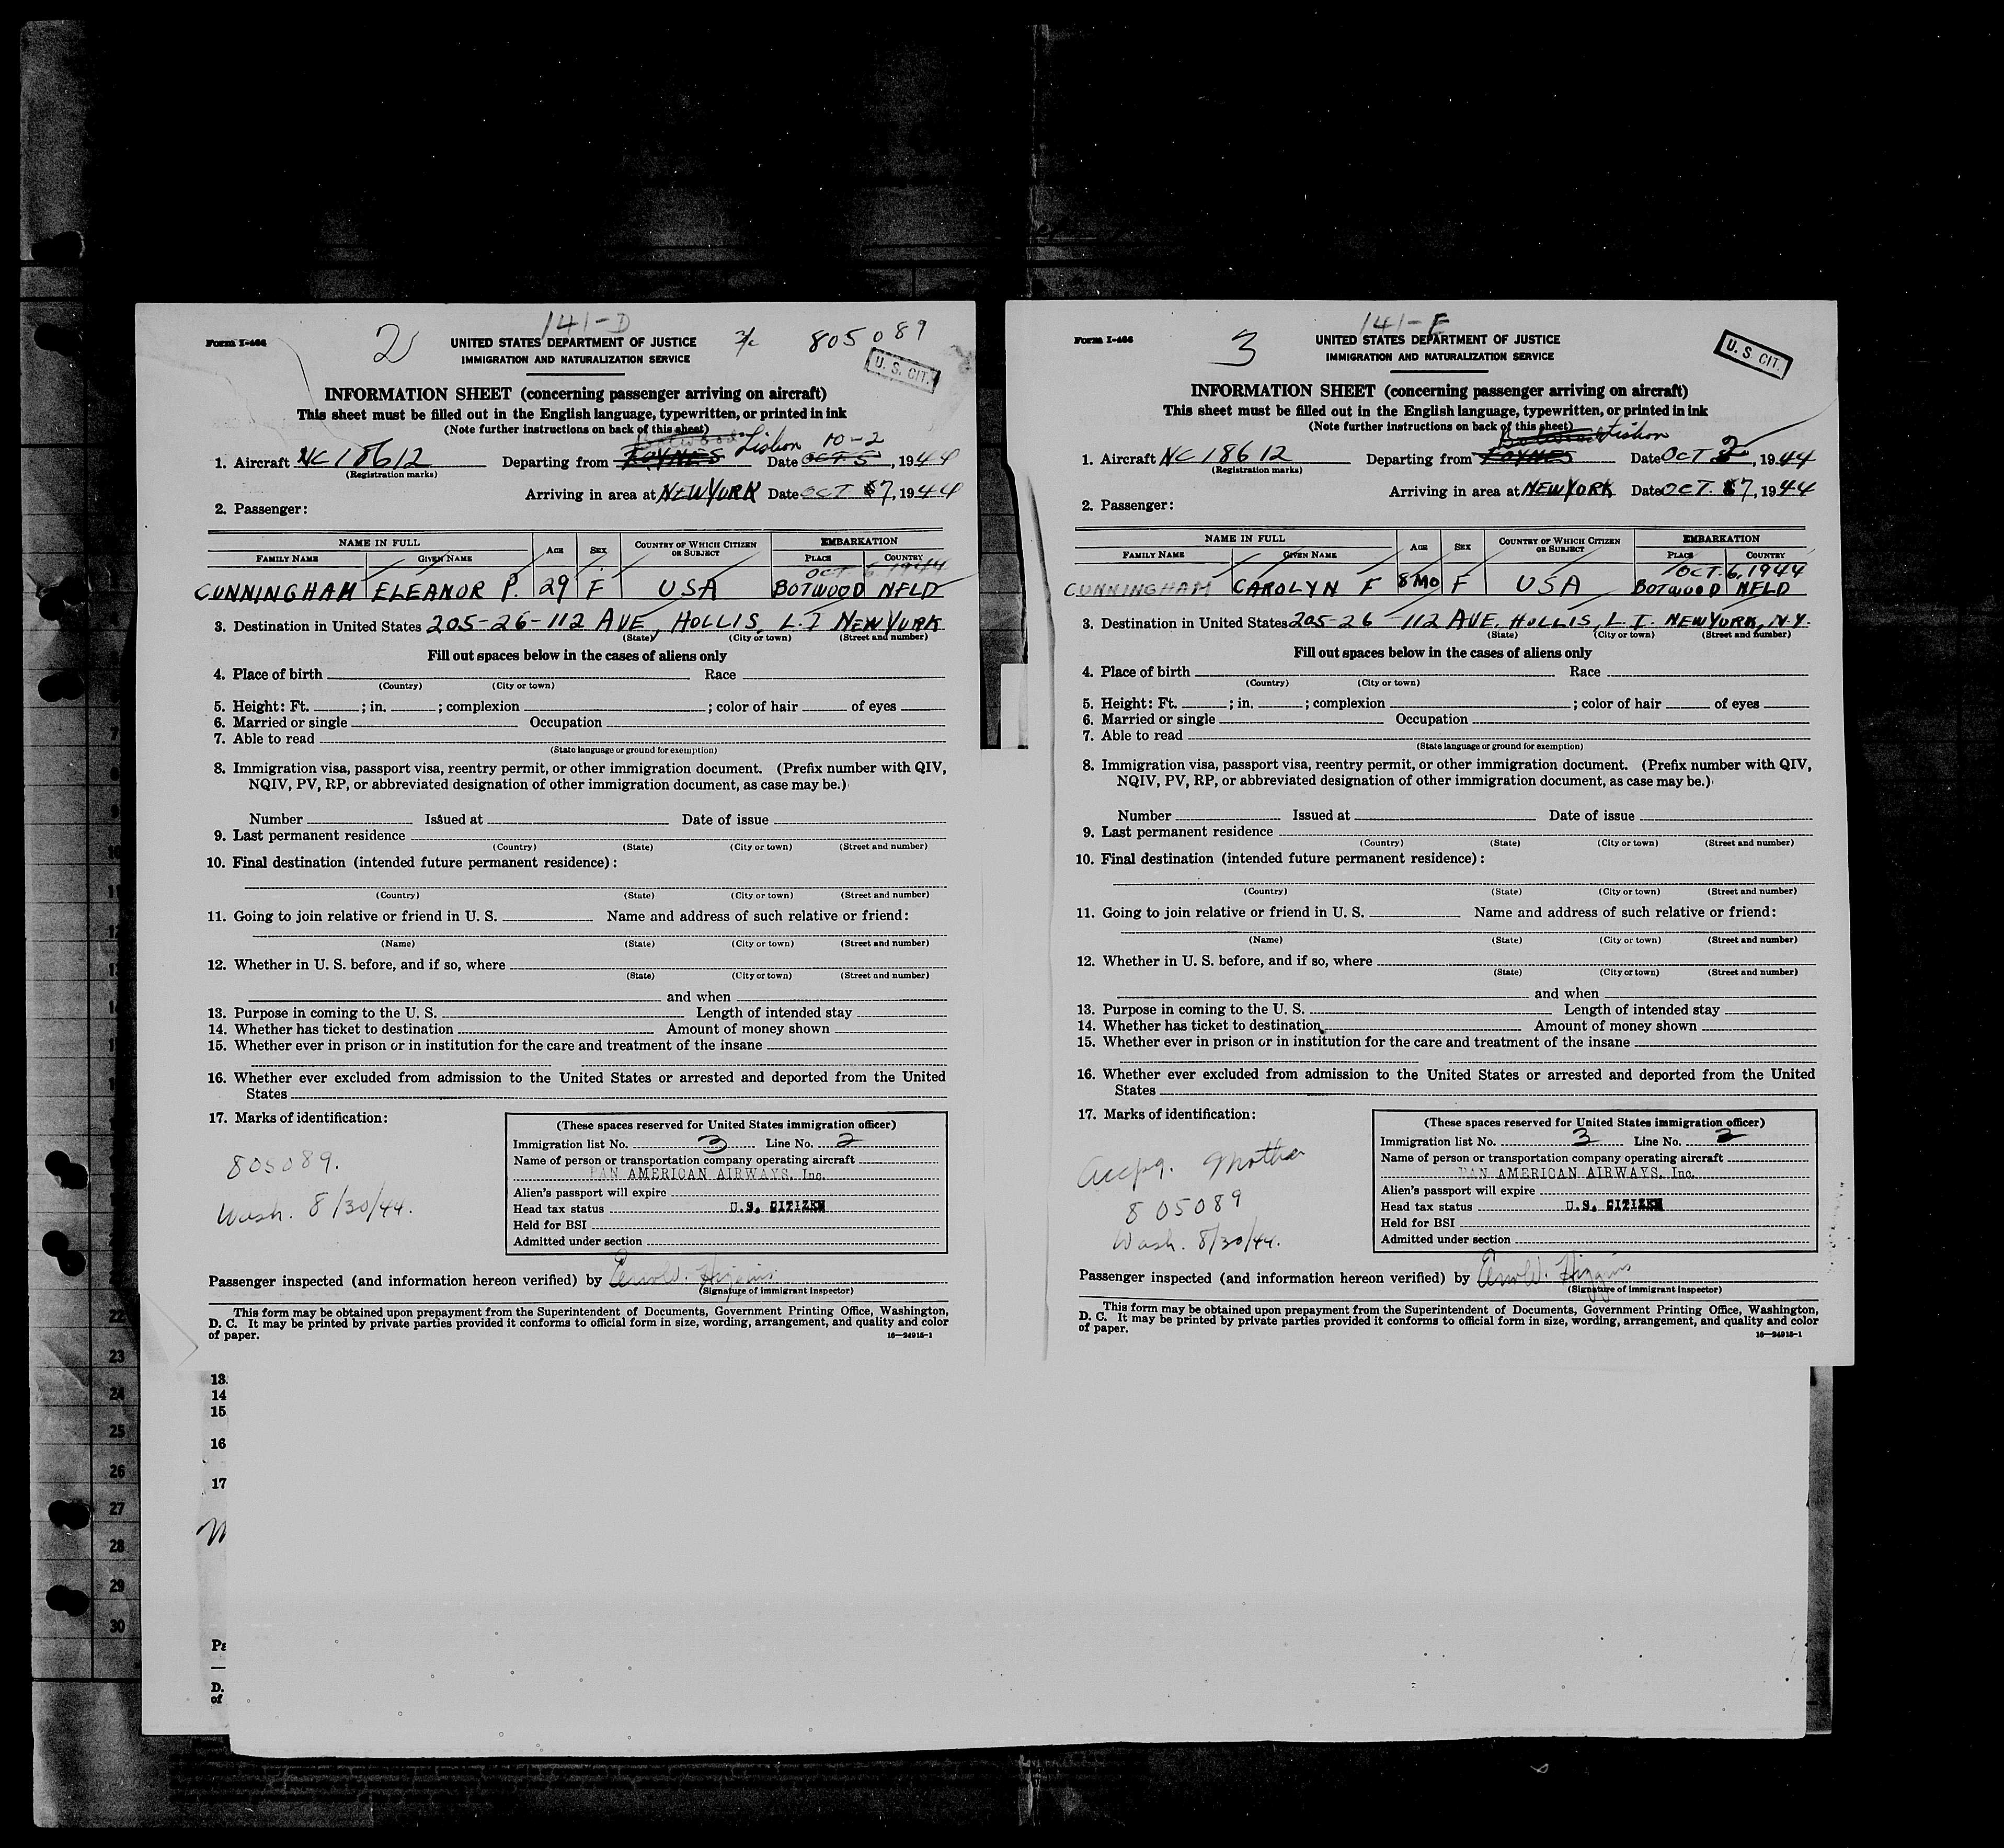 141-D
Form I-466
2
UNITED STATES DEPARTMENT OF JUSTICE
805089
IMMIGRATION AND NATURALIZATION SERVICE
U. S. CIT.
INFORMATION SHEET (concerning passenger arriving on aircraft)
This sheet must be filled out in the English language, typewritten, or printed in ink
(Note further instructions on back of this sheet)
Botwood Lisbon 10-2
1. Aircraft NC18612 Departing from FOYNES Date OCT 5, 1944
(Registration marks)
Arriving in area at NEW YORK Date OCT 7, 1944
2. Passenger:
NAME IN FULL AGE SEX COUNTRY OF WHICH CITIZEN OR SUBJECT EMBARKATION
FAMILY NAME GIVEN NAME PLACE COUNTRY
OCT 6 1944
CUNNINGHAM ELEANOR P. 29 F USA BOTWOOD NFLD
3. Destination in United States 205-26-112 AVE, HOLLIS, L. I NEW YORK
(State) (City or town) (Street and number)
Fill out spaces below in the cases of aliens only
4. Place of birth Race
(Country) (City or town)
5. Height: Ft. ; in. ; complexion ; color of hair of eyes
6. Married or single Occupation
7. Able to read
(State language or ground for exemption)
8. Immigration visa, passport visa, reentry permit, or other immigration document. (Prefix number with QIV,
NQIV, PV, RP, or abbreviated designation of other immigration document, as case may be.)
Number Issued at Date of issue
9. Last permanent residence
(Country) (State) (City or town) (Street and number)
10. Final destination (intended future permanent residence):
(Country) (State) (City or town) (Street and number)
11. Going to join relative or friend in U. S. Name and address of such relative or friend:
(Name) (State) (City or town) (Street and number)
12. Whether in U. S. before, and if so, where
(State) (City or town) (Street and number)
and when
13. Purpose in coming to the U. S. Length of intended stay
14. Whether has ticket to destination Amount of money shown
15. Whether ever in prison or in institution for the care and treatment of the insane
16. Whether ever excluded from admission to the United States or arrested and deported from the United
States
17. Marks of identification:
(These spaces reserved for United States immigration officer)
Immigration list No. 3 Line No. 2
Name of person or transportation company operating aircraft
PAN AMERICAN AIRWAYS, Inc.
Alien's passport will expire
Head tax status U.S. CITIZEN
Held for BSI
Admitted under section
805089.
Wash. 8/30/44.
Passenger inspected (and information hereon verified) by Higgins
(Signature of immigrant inspector)
This form may be obtained upon prepayment from the Superintendent of Documents, Government Printing Office, Washington,
D. C. It may be printed by private parties provided it conforms to official form in size, wording, arrangement, and quality and color
of paper. 16—24915-1
141-E
Form I-466
3
UNITED STATES DEPARTMENT OF JUSTICE
IMMIGRATION AND NATURALIZATION SERVICE
U. S. CIT.
INFORMATION SHEET (concerning passenger arriving on aircraft)
This sheet must be filled out in the English language, typewritten, or printed in ink
(Note further instructions on back of this sheet)
Botwood Lisbon
1. Aircraft NC18612 Departing from FOYNES Date OCT 2, 1944
(Registration marks)
Arriving in area at NEW YORK Date OCT. 7, 1944
2. Passenger:
NAME IN FULL AGE SEX COUNTRY OF WHICH CITIZEN OR SUBJECT EMBARKATION
FAMILY NAME GIVEN NAME PLACE COUNTRY
OCT. 6, 1944
CUNNINGHAM CAROLYN F 8 MO F USA BOTWOOD NFLD
3. Destination in United States 205-26-112 AVE, HOLLIS, L I. NEW YORK, N.Y.
(State) (City or town) (Street and number)
Fill out spaces below in the cases of aliens only
4. Place of birth Race
(Country) (City or town)
5. Height: Ft. ; in. ; complexion ; color of hair of eyes
6. Married or single Occupation
7. Able to read
(State language or ground for exemption)
8. Immigration visa, passport visa, reentry permit, or other immigration document. (Prefix number with QIV,
NQIV, PV, RP, or abbreviated designation of other immigration document, as case may be.)
Number Issued at Date of issue
9. Last permanent residence
(Country) (State) (City or town) (Street and number)
10. Final destination (intended future permanent residence):
(Country) (State) (City or town) (Street and number)
11. Going to join relative or friend in U. S. Name and address of such relative or friend:
(Name) (State) (City or town) (Street and number)
12. Whether in U. S. before, and if so, where
(State) (City or town) (Street and number)
and when
13. Purpose in coming to the U. S. Length of intended stay
14. Whether has ticket to destination Amount of money shown
15. Whether ever in prison or in institution for the care and treatment of the insane
16. Whether ever excluded from admission to the United States or arrested and deported from the United
States
17. Marks of identification:
(These spaces reserved for United States immigration officer)
Immigration list No. 3 Line No. 2
Name of person or transportation company operating aircraft
PAN AMERICAN AIRWAYS, Inc.
Alien's passport will expire
Head tax status U.S. CITIZEN
Held for BSI
Admitted under section
Mother
805089
Wash. 8/30/44.
Passenger inspected (and information hereon verified) by Higgins
(Signature of immigrant inspector)
This form may be obtained upon prepayment from the Superintendent of Documents, Government Printing Office, Washington,
D. C. It may be printed by private parties provided it conforms to official form in size, wording, arrangement, and quality and color
of paper. 16—24915-1
22
23
24
25
26
27
28
29
30
13.
14
15
16
17
Pa
D.
of